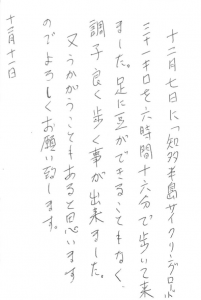 十二月七日に「知多半島サイクリングロード
三十一キロを六時間十六分で歩いて来
ました。足に豆ができることもなく、
調子良く歩く事が出来ました。
又うかがうこともあると思います
のでよろしくお願い致します。
十二月十一日